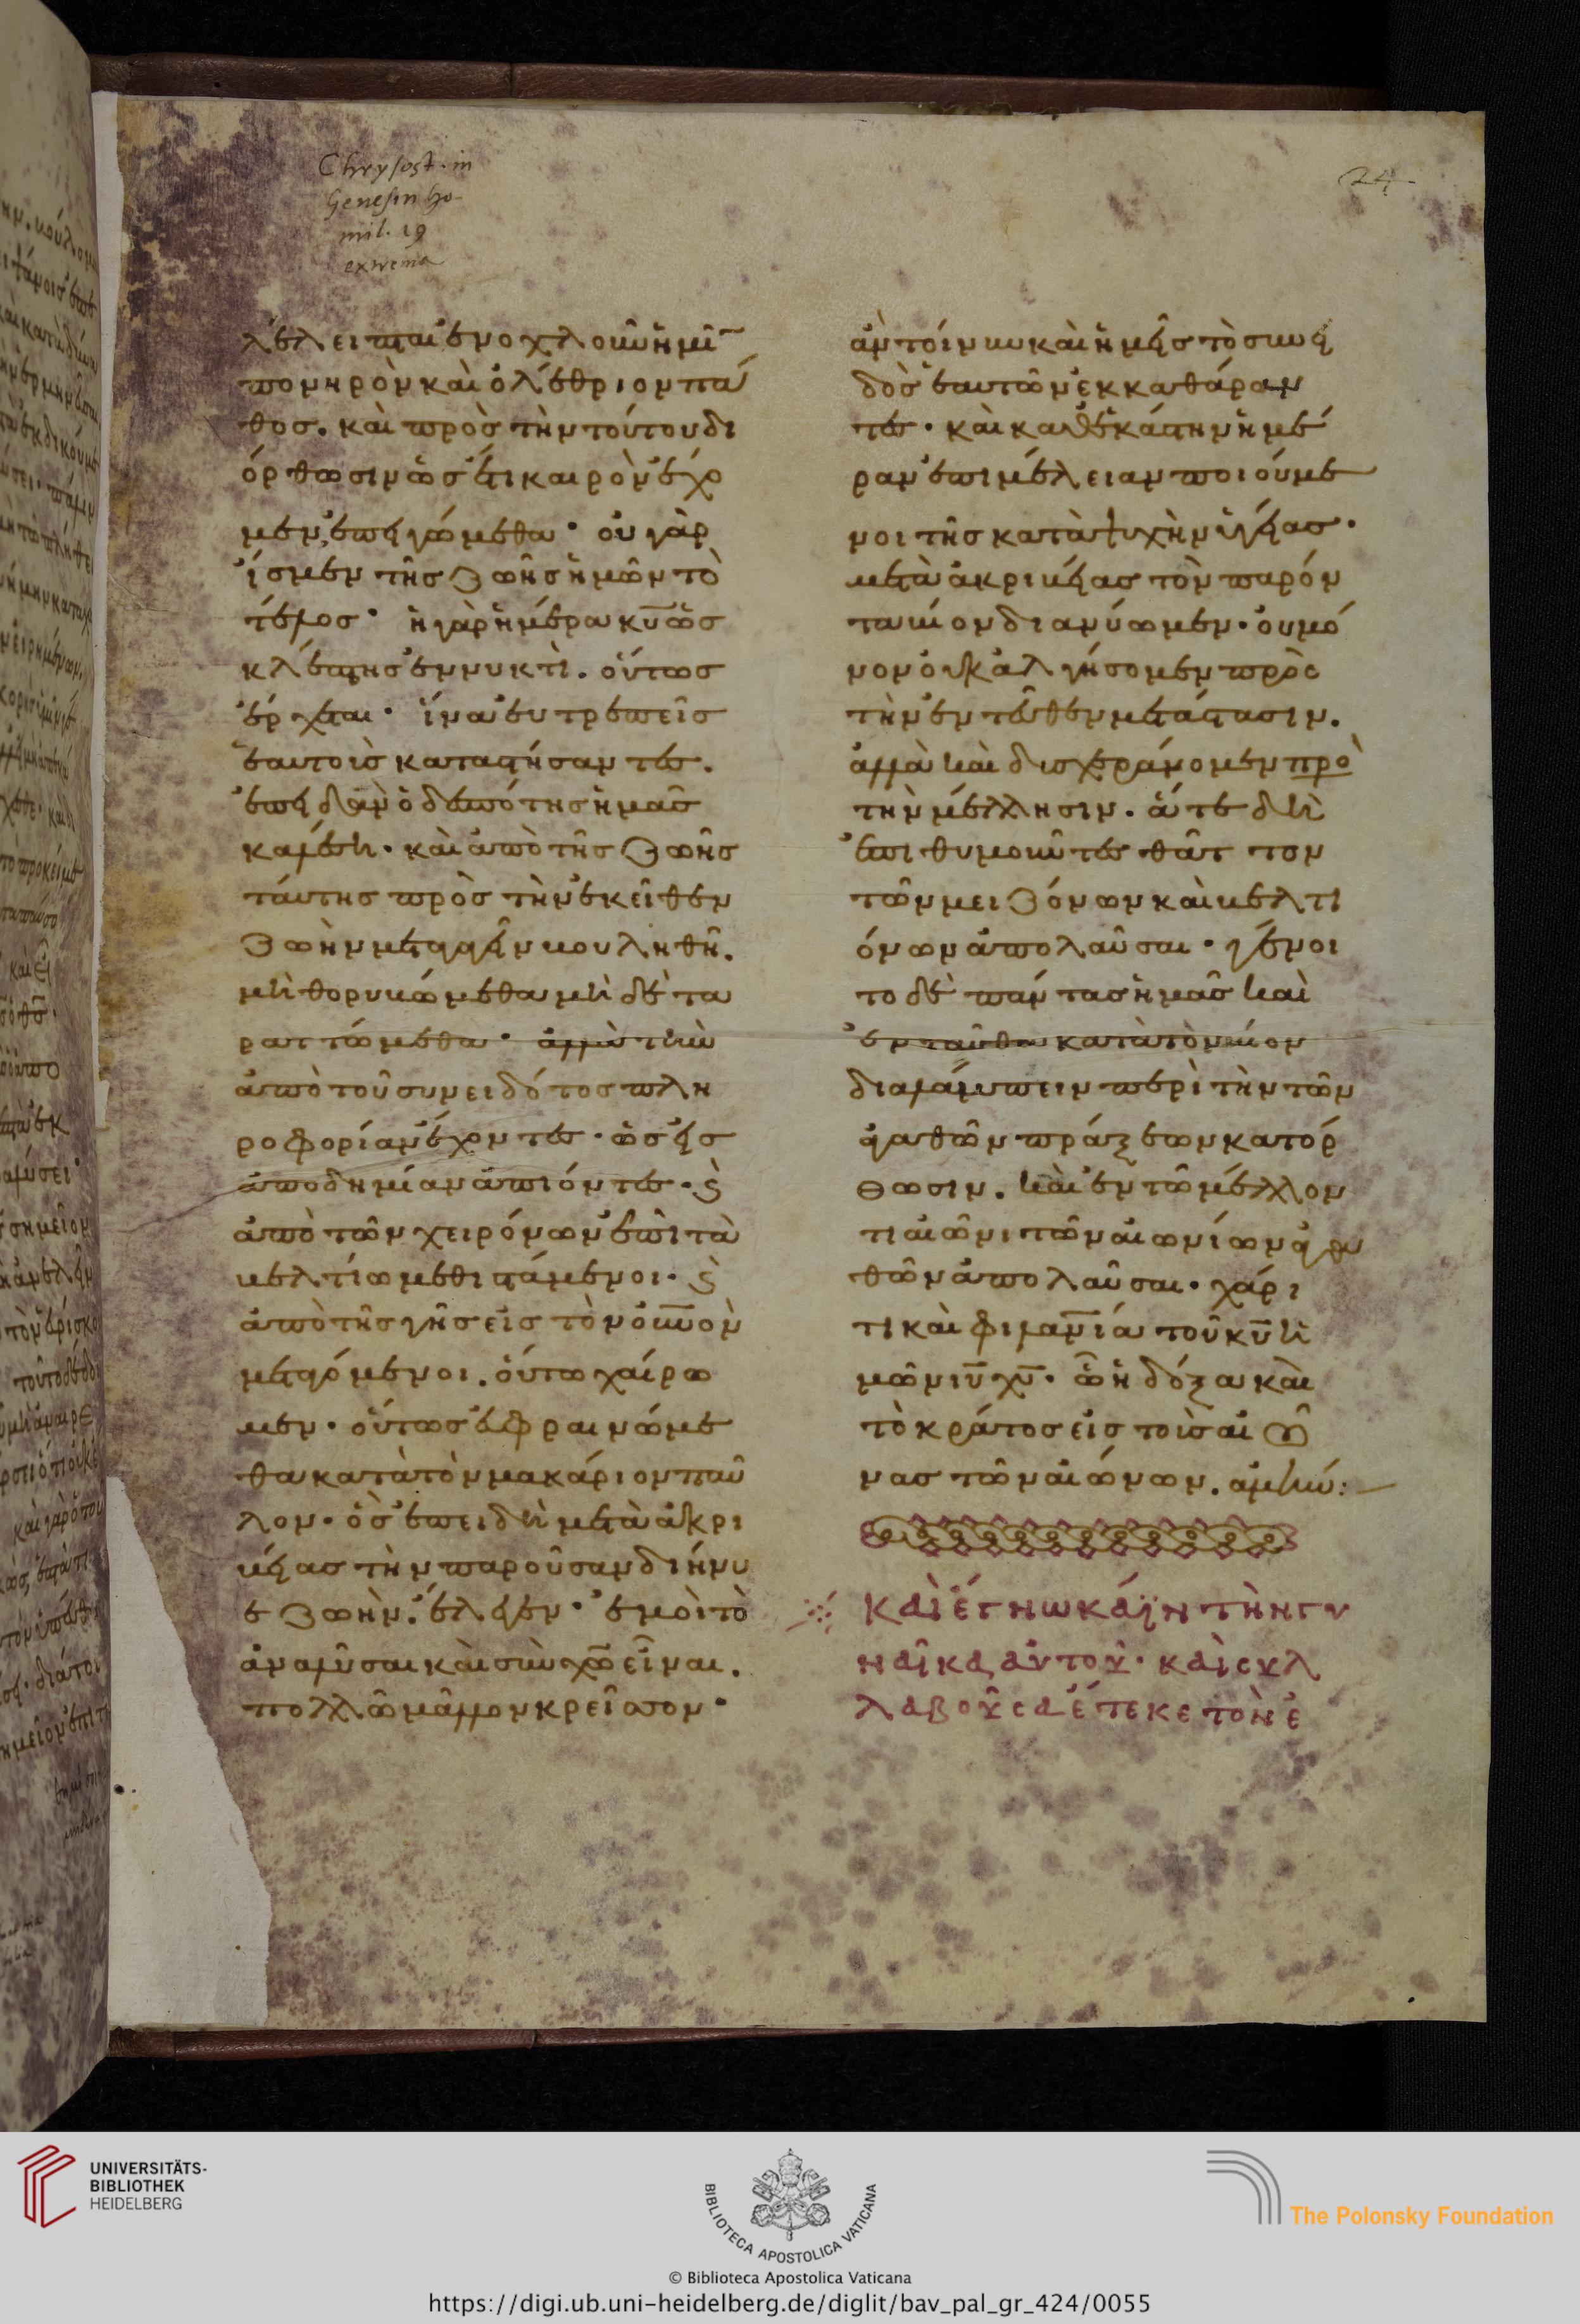 Chrysost. in
Genesin ho-
mil. 19
extrema
24
λέλειπται ἐνοχλοῦν ἡμῖ
πονηρὸν καὶ ὀλέθριον πά
θος. καὶ πρὸς τὴν τούτου δι
όρθωσιν ὡς ἔτι καιρὸν ἔχο
μεν, ἐπειγώμεθα· οὐ γὰρ
ἴσμεν τῆς ζωῆς ἡμῶν τὸ
τέλος· ἡ γὰρ ἡμέρα κυ ὡς
κλέπτης ἐν νυκτὶ. οὕτως
ἔρχεται· ἵνα εὐτρεπεῖς
ἑαυτοὺς καταστήσαντες.
ἐπειδὰν ὁ δεσπότης ἡμᾶς
καλέσῃ. καὶ ἀπὸ τῆς ζωῆς
ταύτης πρὸς τὴν ἐκεῖθεν
ζωὴν μεταγαγεῖν βουληθῆ.
μὴ θορυβώμεθα μὴ δὲ τα
ραττώμεθα· ἀλλὰ τὴν
ἀπὸ τοῦ συνειδότος πλη
ροφορίαν ἔχοντες. ὡς εἰς
ἀποδημίαν ἀπιόντες. ϛ
ἀπὸ τῶν χειρόνων ἐπὶ τὰ
βελτίω μεθιστάμενοι. ϛ
ἀπὸ τῆς γῆς εἰς τὸν οὐνον
μεταγόμενοι. οὕτω χαίρω
μεν. οὕτως εὐφραινώμε
θα κατὰ τὸν μακάριον παῦ
λον. ὃς ἐπειδὴ μετὰ ἀκρι
βείας τὴν παροῦσαν διήνυ
ε ζωὴν. ἔλεγεν· ἐμοὶ τὸ
ἀναλῦσαι καὶ σὺν χω εἶναι.
πολλῶ μᾶλλον κρεῖσσον·
ἂν τοίνυν καὶ ἡμεῖς τὸ συνει
δὸς ἑαυτῶν ἐκκαθάραν
τες. καὶ καθ' ἑκάστην ἡμέ
ραν ἐπιμέλειαν ποιούμε
νοι τῆς κατὰ ψυχὴν ὑγείας.
μετὰ ἀκριβείας τὸν παρόν
τα βίον διανύωμεν. οὐ μό
νον οὐκ ἀλγήσομεν πρὸς
τὴν ἐντεῦθεν μετάστασιν.
ἀλλὰ καὶ δυσχεράνομεν πρὸ
τὴν μέλλησιν. ἅτε δὴ
ἐπιθυμοῦντες θᾶττον
τῶν μειζόνων καὶ βελτι
όνων ἀπολαῦσαι. γένοι
το δὲ πάντας ἡμᾶς καὶ
ἐνταῦθα κατὰ τὸν βίον
διαλάμπειν περὶ τὴν τῶν
ἀγαθῶν πράξεων κατόρ
θωσιν. καὶ ἐν τῶ μέλλον
τι αἰῶνι τῶν αἰωνίων ἀγα
θῶν ἀπολαῦσαι. χάρι
τι καὶ φιλανία τοῦ κυ ἡ
μῶν ιυ χυ. ὧ ἡ δόξα καὶ
τὸ κράτος εἰς τοὺς αἰῶ
νας τῶν αἰώνων. ἀμήν:
ΚΑῚ ἔΓΝΩ ΚΆΪΝ ΤῊΝ ΓΥ
ΝΑῖΚΑ ΑΥΤΟῦ. ΚΑῚ CΥΛ
ΛΑΒΟῦCΑ ἔΤΕΚΕ ΤῸΝ Ἐ
UNIVERSITÄTS-
BIBLIOTHEK
HEIDELBERG
BIBLIOTECA APOSTOLICA VATICANA
The Polonsky Foundation
© Biblioteca Apostolica Vaticana
https://digi.ub.uni-heidelberg.de/diglit/bav_pal_gr_424/0055